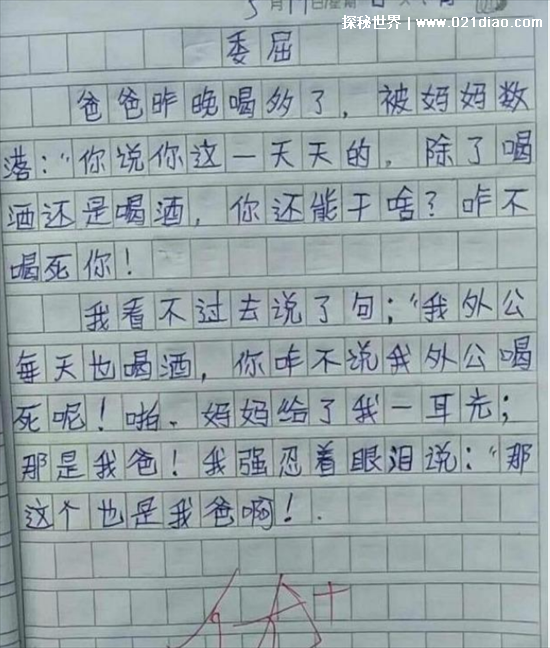 探秘世界 | www.021diao.com
委屈
爸爸昨晚喝多了，被妈妈数
落：“你说你这一天天的，除了喝
酒还是喝酒，你还能干啥？咋不
喝死你！
我看不过去说了句；“我外公
每天也喝酒，你咋不说我外公喝
死呢！啪．妈妈给了我一耳光；
那是我爸！我强忍着眼泪说：“那
这个也是我爸啊！．